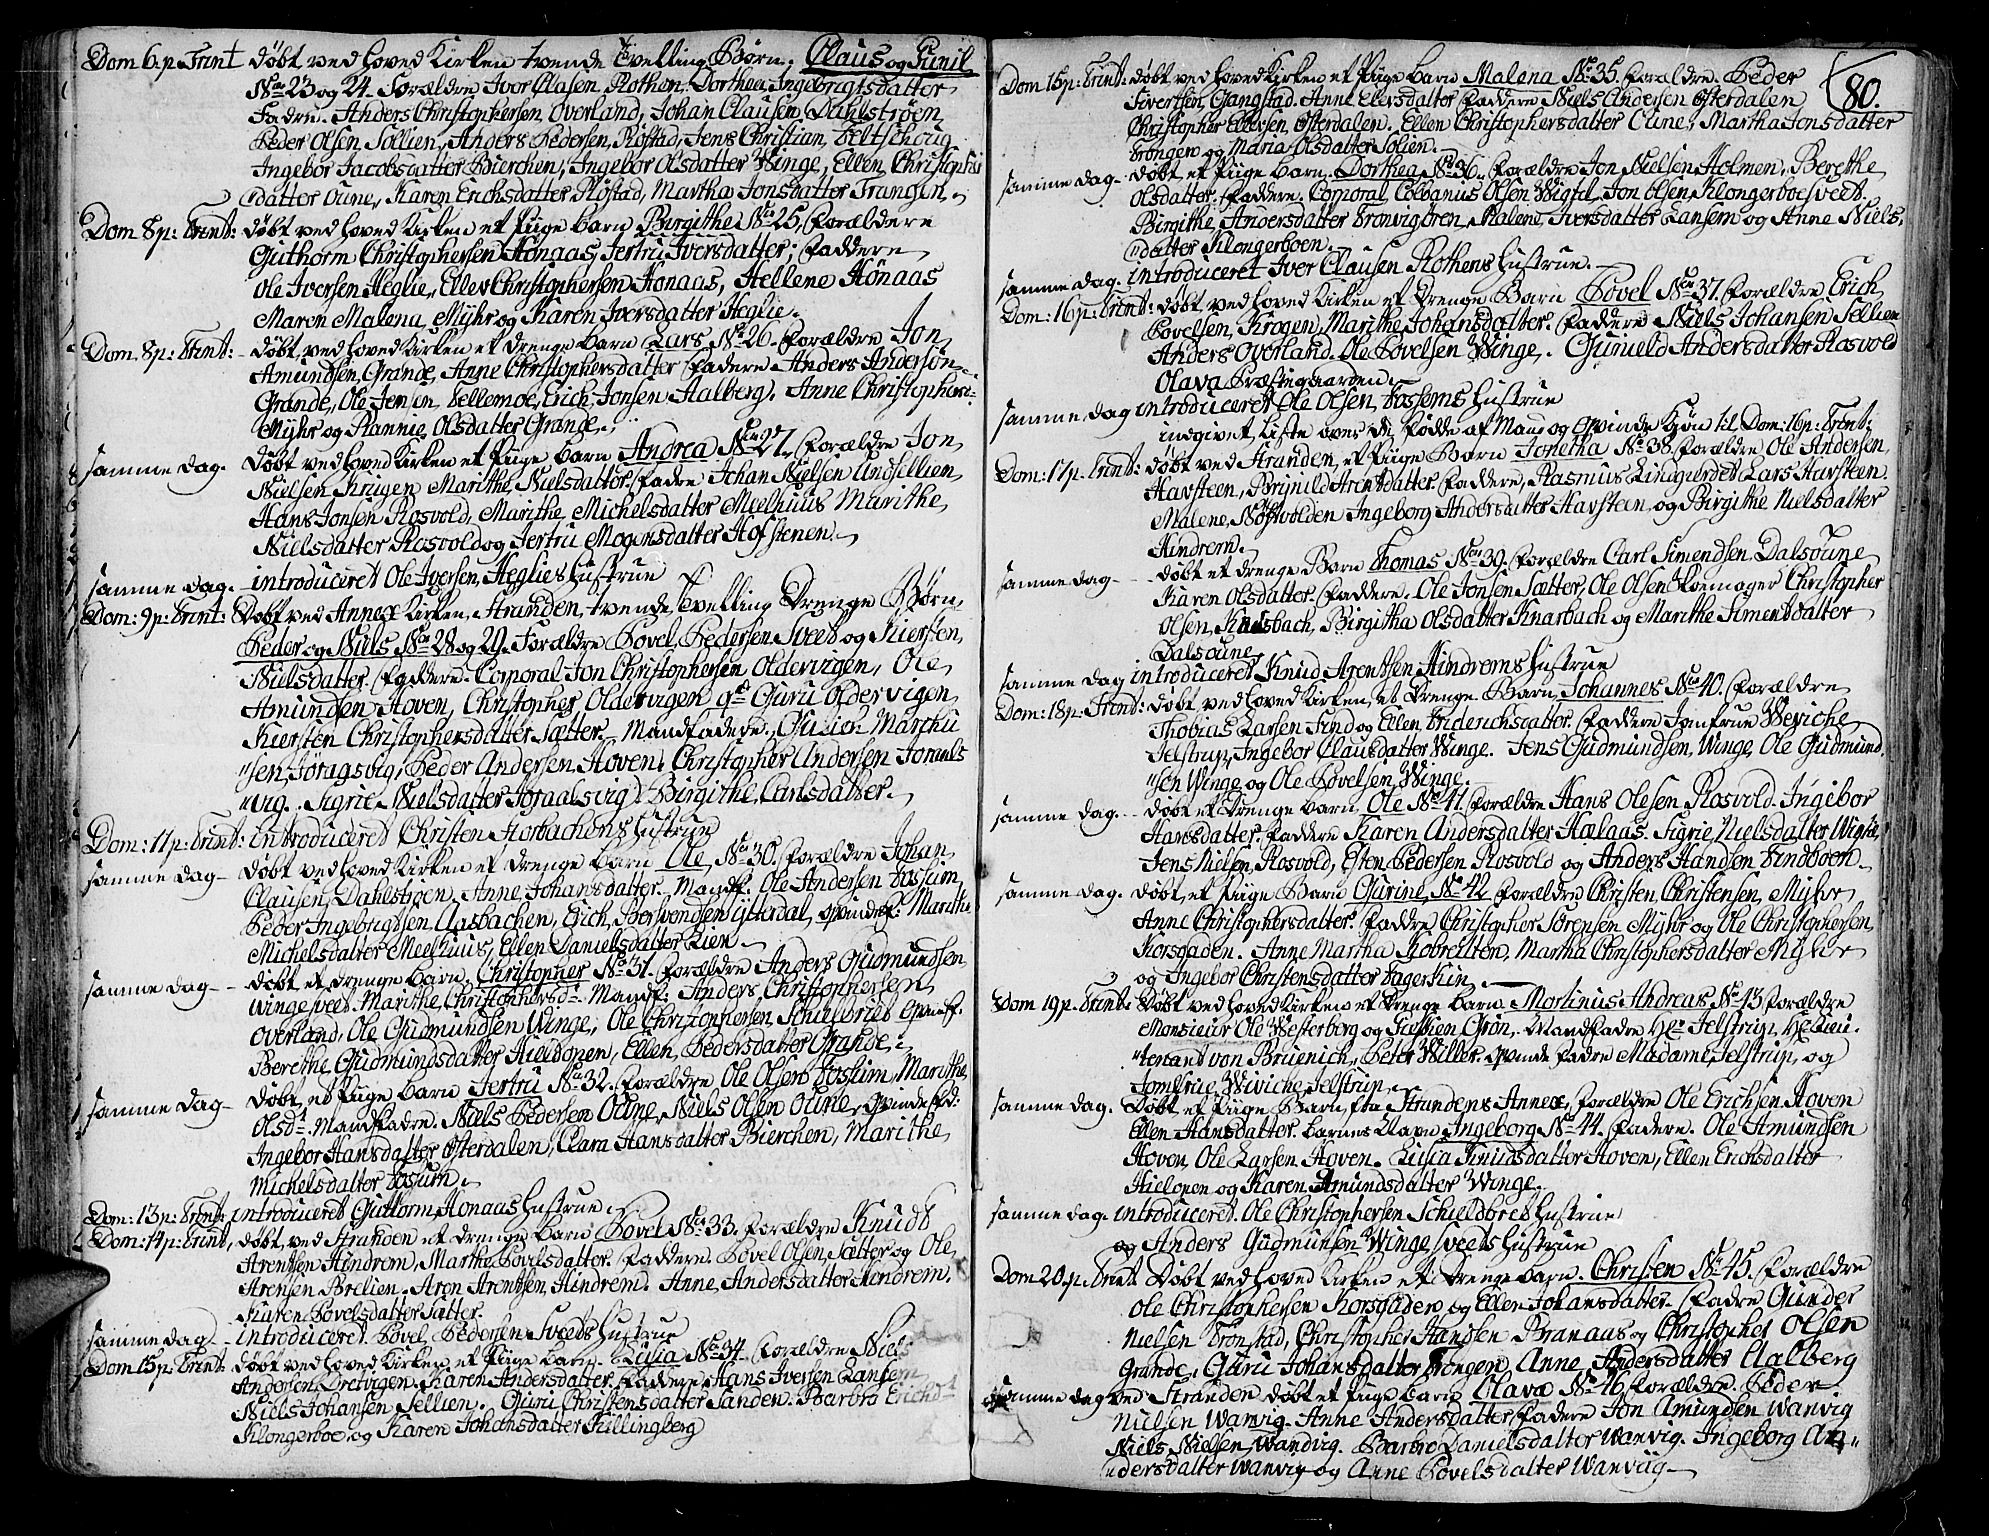 Dom 6. p. Trint døbt ved hoved Kirken tvende Tvelling Børn. Claus og Gunil
No 23 og 24. Forældre Iver Olasen Rothen. Dorthea Ingebrigtsdatter
Fadre. Anders Christophersen Overland, Johan Clausen Dahlstrøen
Peder Olsen Sollien, Anders Pedersen, Røstad, Jens Christian Feltscherig
Ingebor Jacobsdatter Bierchen, Ingebor Olsdatter Winge, Ellen Christophers
datter Oune, Karen Erichsdatter Røstad, Martha Jonsdatter Trangen.
Dom 8 p: Trint: døbt ved hoved Kirken et Pige barn Birgithe No 25, Forældere
Guthorm Christophersen Hønaas, Jertru Iversdatter; Faddere
Ole Iversen Heglie, Ellev Christophersen Hønaas, Hellene Hönaas
Maren Malena Myhr og Karen Iversdatter Heglie.
Dom. 8 p: Trint: døbt ved hoved Kirken et drenge barn Lars No 26. Forældre Jon
Amundsen Grande, Anne Christophersdatter Fadere Anders Anderson
Grande, Ole Jensen Tellemoe, Erich Jonsen Aalberg. Anne Christophers
Myhr og Rannie Olsdatter Grange.
samme dag. døbt ved hoved Kirken et Pige barn Andrea No 27. Forældre Jon
Nielsen Krigen Marithe Nielsdatter. Fadre Johan Nielsen Undsellien
Hans Jonsen Rosvold, Marithe Michelsdatter Meelhuus Marithe
Nielsdatter Rosvold og Jertru Mogensdatter Hofstenen.
samme dag. introduceret Ole Iversen Heglies Hustrue
Dom: 9 p: Trint: Døbt ved Annex Kirken Stranden, tvende Tvelling Drenge Børn
Peder og Niels No 28 og 29. Forældre Povel Pedersen Sveet og Kiersten
Nielsdatter. Faddere. Corporal Jon Christophersen Oldervigen, Ole
Amundsen Hoven, Christopher Oldervigen qd Guru Oldervigen
Kiersten Christophersdatter Sætter.
sen Foragsvig, Peder Andersen Hoven. Christopher Andersen Foraals
vig. Sigrie Nielsdatter Foraalsvig. Birgithe Carlsdatter.
Dom: 11 p: Trint: introduceret Christen Korbachens Hustrue
samme dag døbt ved hoved Kirken et drenge barn Ole No 30. Forældre Johan
Clausen Dahlstrøen, Anne Johansdatter. Mandf. Ole Andersen Fossum
Peder Ingebrigtsen Aasbachen, Erich Bersvendsen Ytterdal, qvindef: Marithe
Michelsdatter Meelhuus, Ellen Danielsdatter Lien
samme dag døbt et drenge barn Christopher No 31. Forældre Anders Gudmundsen
Winge sveet Marithe Christophersdr. Mandf: Anders Christophersen
Overland, Ole Gudmundsen Winge, Ole Christophersen Schieldbriet Qvindf.
Berethe Gudmundsdatter Hieldonen, Ellen Pedersdatter Grande.
samme dag døbt et Pige barn Jertru No 32. Forældre Ole Olsen Fossum, Marithe
Olsdr. Mandfadre. Niels Pedersen Oune, Niels Olsen Oune, qvindefad:
Ingebor Hansdatter Østerdalen, Clara Hansdatter Bierchen, Marithe
Michelsdatter Fossum.
Dom: 13 p: Trint: introduceret Guttorm Honaas Hustrue
Dom: 14 p: Trint, døbt ved Stranden et drenge barn Povel No 33. Forældre Knudt
Arentsen Hindrem, Marthe Povelsdatter. Faddere. Povel Olsen Sætter og Ole
Arensen Brelien. Aren Arentsen Hindrem. Anne Andersdatter Hindrem.
Karen Povelsdatter Sætter.
samme dag introduceret. Povel Pedersen Sveeds Hustrue
Dom 15 p: Trint: døbt ved hoved Kirken et Pige barn. Lisia No 34. Forældre Niels
Andersen Dretvigen. Karen Andersdatter. Faddere, Hans Iversen Lansem
Niels Johansen Sellien. Guri Christensdatter Sanden. Barbro Erichsdr
Klongerboe og Karen Johansdatter Killingberg
80.
Dom 15 p: Trint: døbt ved hoved Kirken et Pige barn Malena No 35. Forældre. Peder
Sivertsen Gangstad. Anne Eliersdatter Faddere Niels Andersen Østerdalen
Christopher Ellersen Østerdalen. Ellen Christophersdatter Oune, Martha Jonsdatter
Trongen og Maria Olsdatter Solien.
samme dag. døbt et Pige barn. Dorthea No 36. Forældre Jon Nielsen Holmen, Berethe
Olsdatter. Faddere. Corporal Colbanius Olsen Wigtel, Jon Olsen Klongerboe sveet.
Birgithe Andersdatter Tronvigören, Malene Iversdatter Lansem og Anne Niels
datter Klongerboen.
samme dag. introduceret Iver Clausen Rothens Hustrue.
Dom: 16 p: Trint: døbt ved hoved Kirken et Drenge Barn Povel No 37. Forældre Erich
Povelsen Krogen, Marithe Johansdatter. Faddere Niels Johansen Sellien
Anders Overland. Ole Povelsen Winge, Gunield Andersdatter Rosvold
Olava Præstegaarden.
samme dag introduceret Ole Olsen Fossems Hustrue
indgivet Liste over de fødde af Mand og Qvinde Kjøn til Dom: 16 p: Trint:
Dom: 17 p. Trint: døbt ved Stranden, et Piige Barn Jonetha No 38. Forældre Ole Andersen
Havsteen, Brynild Arentsdatter. Faddere, Rasmus Lindgierdet Lars Havsteen
Malene Nøstvolden Ingeborg Andersdatter Havsteen og Birgithe Nielsdatter
Hindrem.
samme dag døbt et drenge Barn Thomas No 39. Forældre Carl Simendsen Dalsoune
Karen Olsdatter. Faddere. Ole Jonsen Sætter, Ole Olsen Skoemager Christopher
Olsen, Knarbach, Birgitha Olsdatter Knarbach og Marithe Simensdatter
Dalsoune
samme dag introduceret Knud Arentsen Hindrems Hustrue
Dom: 18 p: Trint: døbt ved hoved Kirken, et Drenge Barn Johannes No 40. Forældre
Thobias Larsen Sund og Ellen Friderichsdatter. Faddere Jomfrue Weviche
Jelstrup, Ingebor Clausdatter Winge. Jens Gudmundsen, Winge, Ole Gudmund
sen Winge og Ole Povelsen Winge.
samme dag. døbt et Drenge barn Ole No 41. Forældre Hans Olesen Rosvold. Ingebor
Hansdatter. Faddere Karen Andersdatter Hælaas. Sigrie Nielsdatter Winge,
Jens Nielsen Rosvold, Esten Pedersen Rosvold og Anders Handsen Sundboen
samme dag. døbt, et Piige Barn Gurine No 42 Forældre Christen Christensen Myhr
Anne Christophersdatter. Faddre Christopher Sörensen Myhr og Ole Christophersen
Korsgaden. Anne Martha Kobreulten. Martha Christophersdatter Myhr
og Ingebor Christensdatter Fagerliin.
Dom 19 p. Trint: Døbt ved hoved Kirken et drenge barn Mortinus Andreas No 43 Forældre
Monsieur Ole Westerberg og Susthien Grøn. Mandfadre Her Jelstrup, Hr Lieu
tenand von Bruenich, Peter Willer. qvinde fadre Madame Jelstrup, og
Jomfrue Wiviche Jelstrup.
samme dag. Døbt et Piige Barn fra Strandens Annex, Forældre Ole Erichsen Hoven
Ellen Hansdatter. barnes Navn Ingeborg No 44. Fadere. Ole Amundsen
Hoven, Ole Larsen Hoven. Lisia Knudsdatter Hoven, Ellen Erichsdatter
Hielopen og Karen Amundsdatter Winge.
samme dag. introduceret. Ole Christophersen Schieldbrets Hustrue
og Anders Gudmunsen Winge Sveets Hustrue
Dom 20. p. Trint Døbt ved hoved Kirken et Drenge barn. Christen No 45. Forældre
Ole Christophersen Korsgaden og Ellen Johansdatter. Fadre Gunder
Nielsen Tronstad, Christopher Handsen Branaas og Christopher Olsen
Grande, Guru Johansdatter Trongen, Anne Andersdatter Aalberg
samme dag ved Stranden døbt et Pige barn Olava No 46. Forældre. Peder
Nielsen Wanvig. Anne Andersdatter, Fadere Jon Amunden Wanvig
Niels Nielsen Wandvig. Barbro Danielsdatter Wanvig. Ingeborg An
dersdatter Wanvig og Anne Povelsdatter Wanviig